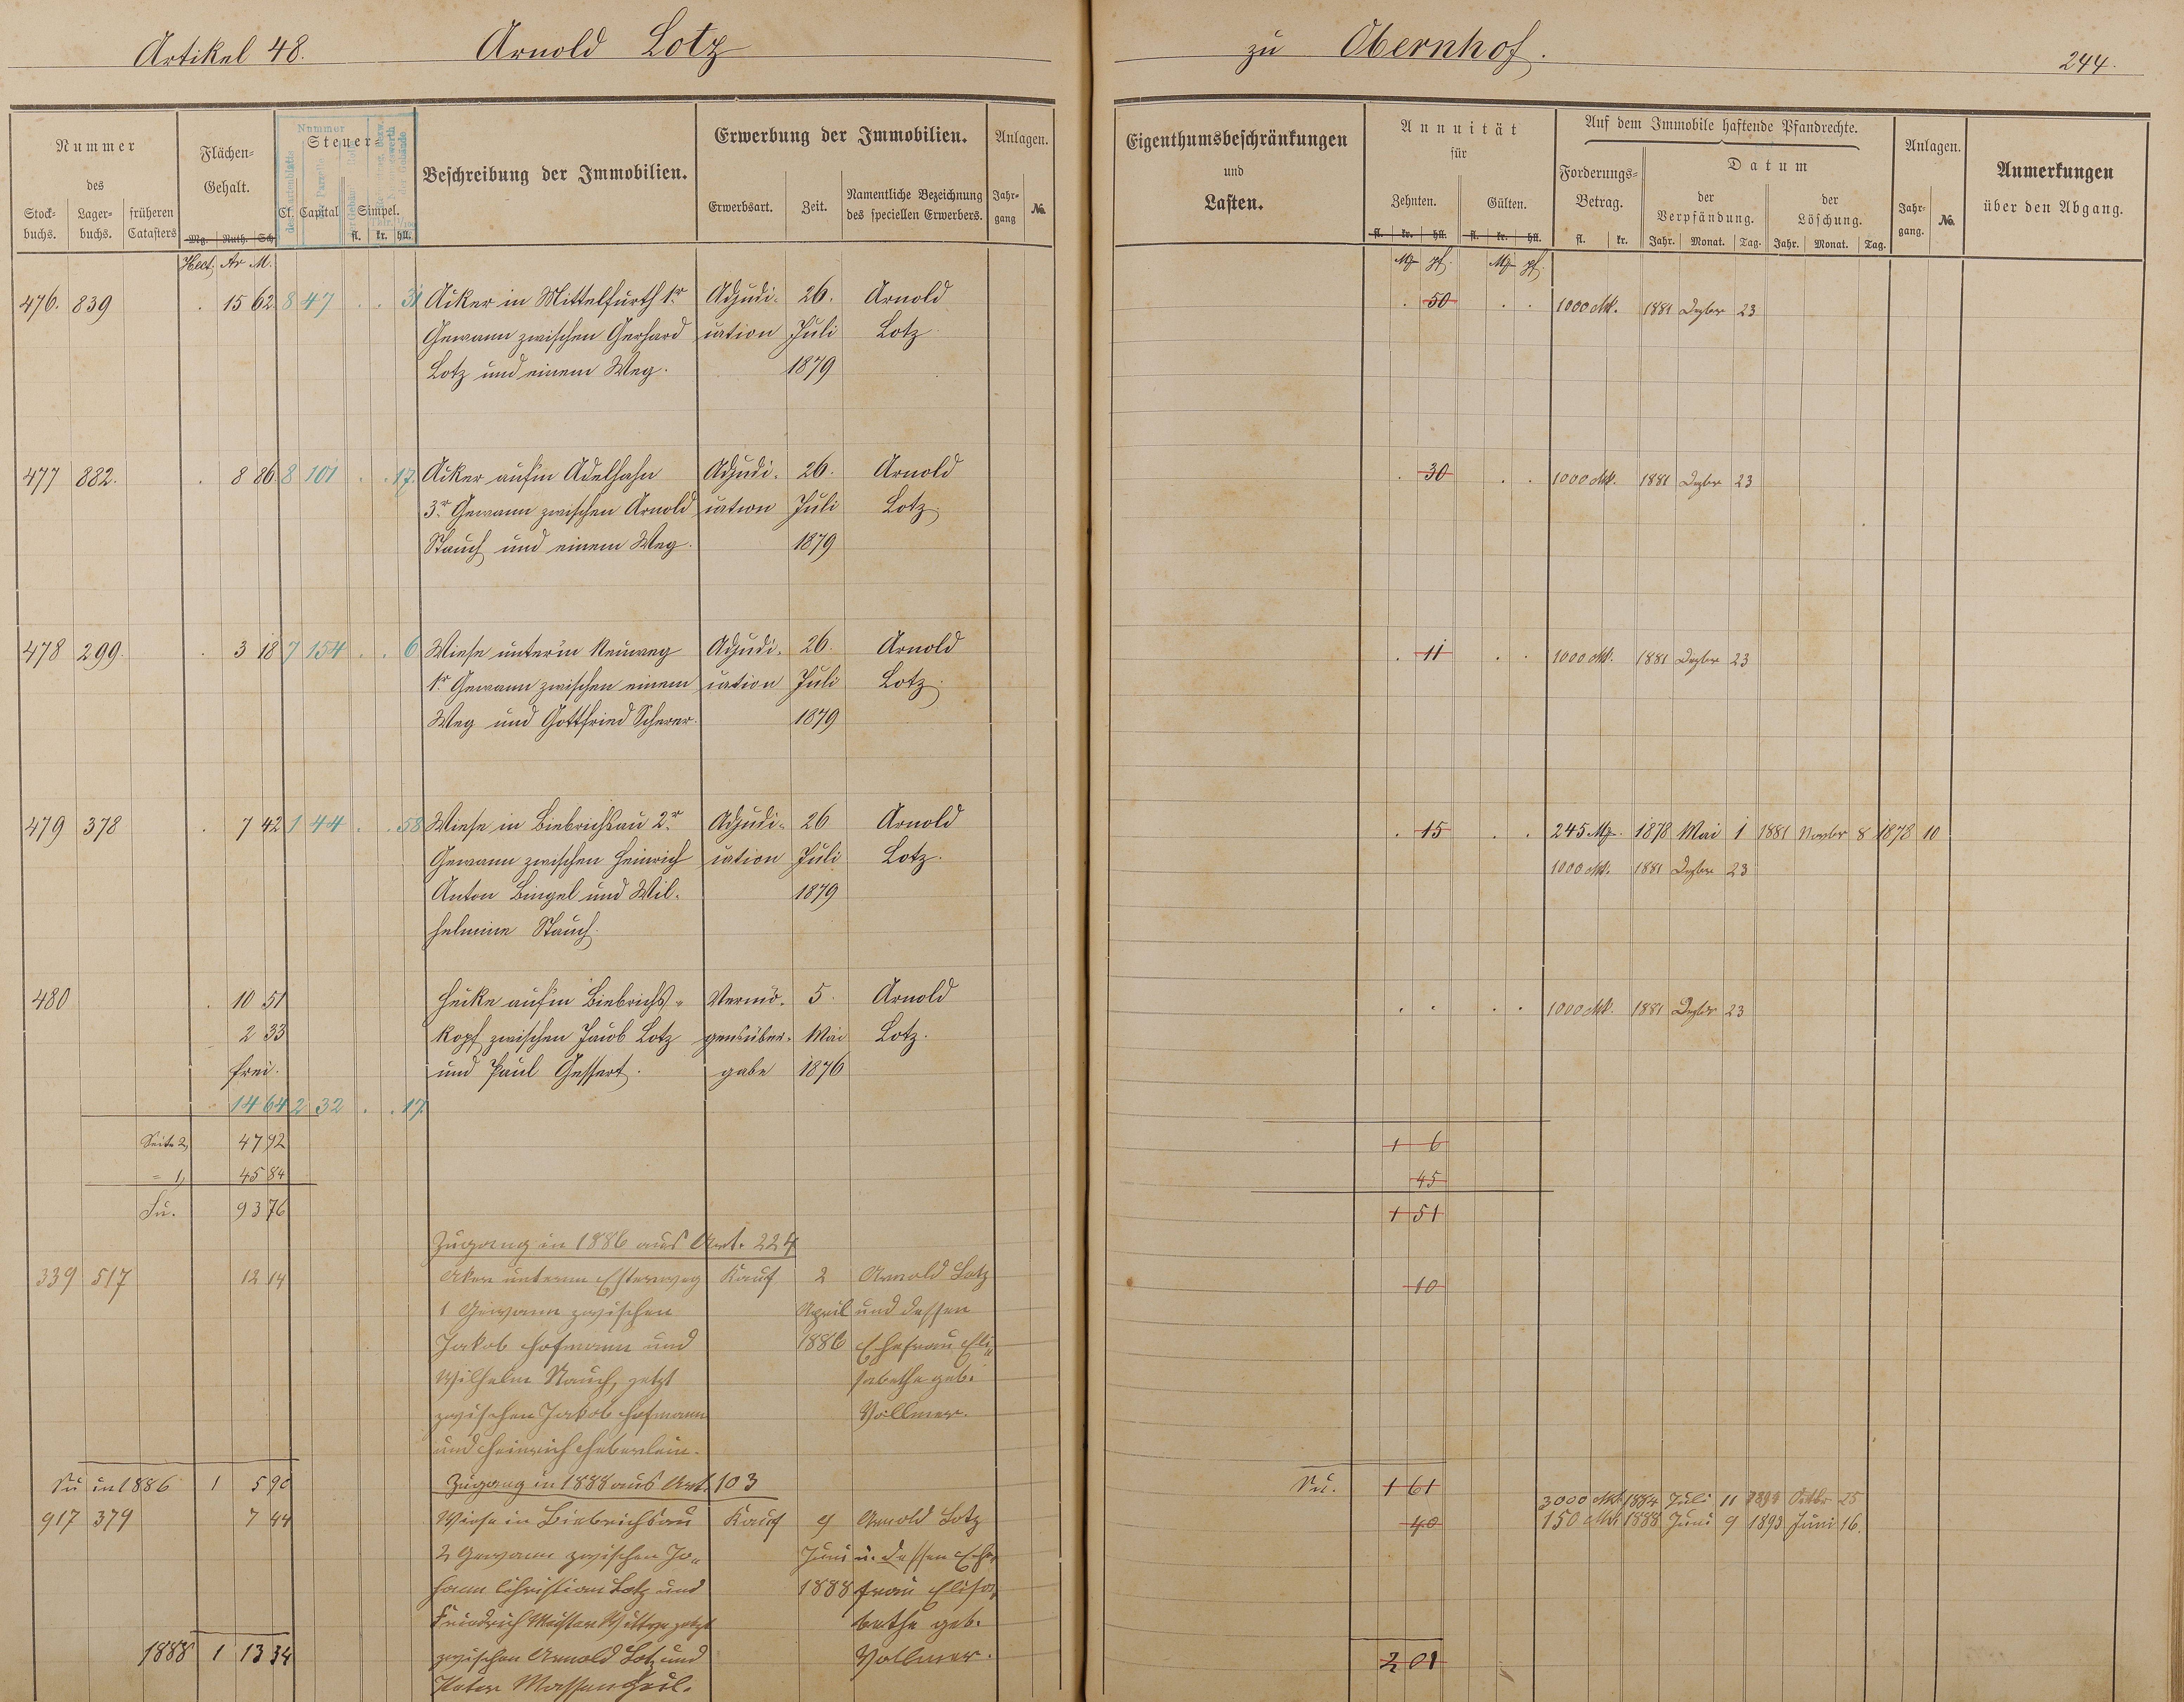 Artikel 48. Arnold Lotz zu Obernhof. 244.
Nummer des
Stockbuchs. Lagerbuchs. früheren Catasters
Flächen-Gehalt.
Mg. Ruth. Sch.
Hect. Ar M.
Nummer
Steuer-
Cl. Capital Simpel.
fl. kr. hll.
Beschreibung der Immobilien.
Erwerbung der Immobilien.
Erwerbsart. Zeit. Namentliche Bezeichnung des speciellen Erwerbers.
Anlagen.
Jahrgang No.
Eigenthumsbeschränkungen und Lasten.
Annuität für
Zehnten. Gülten.
fl. kr. hll. fl. kr. hll.
Mk pf. Mk pf.
Auf dem Immobile haftende Pfandrechte.
Forderungs-Betrag. Datum
fl. kr.
der Verpfändung. der Löschung.
Jahr. Monat. Tag. Jahr. Monat. Tag.
Anlagen.
Jahrgang. No.
Anmerkungen über den Abgang.
476. 839 . 15 62 8 47 . . 31 Acker in Mittelfurth 1r Adjudi- 26. Arnold . 50 . . 1000 Mk. 1881 Dezbr 23
Gewann zwischen Gerhard cation Juli Lotz
Lotz und einem Weg. 1879
477 882. . 8 86 8 101 . . 17. Acker auf'm Adelhahn Adjudi- 26. Arnold . 30 . . 1000 Mk. 1881 Dezbr 23
3r Gewann zwischen Arnold cation Juli Lotz.
Stauch und einem Weg. 1879
478 299. . 3 18 7 154 . . 6 Wiese unter'm Reinweg Adjudi- 26. Arnold . 11 . . 1000 Mk. 1881 Dezbr 23
1r Gewann zwischen einem cation Juli Lotz.
Weg und Gottfried Scherer. 1879
479 378 . 7 42 1 44 . . 58 Wiese in Biebrichsau 2r Adjudi- 26 Arnold . 15 . . 245 Mk. 1878 Mai 1 1881 Novbr 8 1878 10
Gewann zwischen Heinrich cation Juli Lotz. 1000 Mk. 1881 Dezbr 23
Anton Bingel und Wil- 1879
helmine Stauch.
480 . 10 51 Hecke auf'm Biebrichs- Vermö- 5. Arnold . . . . 1000 Mk. 1881 Dezbr 23
2 33 kopf zwischen Jacob Lotz gensüber- Mai Lotz.
frei. und Paul Gessert. gabe 1876
14 64 2 32 . . 17.
Seite 2, 47 92 1 6
= 1, 45 84 45
Su. 93 76 1 51
Zugang in 1886 aus Art. 224
339 517 12 14 Acker unterm Esterweg Kauf 2 Arnold Lotz 10
1 Gewann zwischen April und dessen
Jakob Hofmann und 1886 Ehefrau Eli-
Wilhelm Stauch, jetzt sabethe geb.
zwischen Jakob Hofmann Vollmer.
und Heinrich Heberlein.
Su in 1886 1 5 90 Zugang in 1888 aus Art. 103 Su. 1 61
3000 Mk 1884 Juli 11 1894 Octbr 25
917 379 7 44 Wiese in Biebrichsau Kauf 9 Arnold Lotz 40 150 Mk 1888 Juni 9 1893 Juni 16.
2 Gewann zwischen Jo- Juni u. dessen Ehe-
hann Christian Lotz und 1888 frau Elisa-
Friedrich Wittwe jetzt bethe geb.
1888 1 13 34 zwischen Arnold Lotz und Vollmer. 2 01
Peter Massengeil.